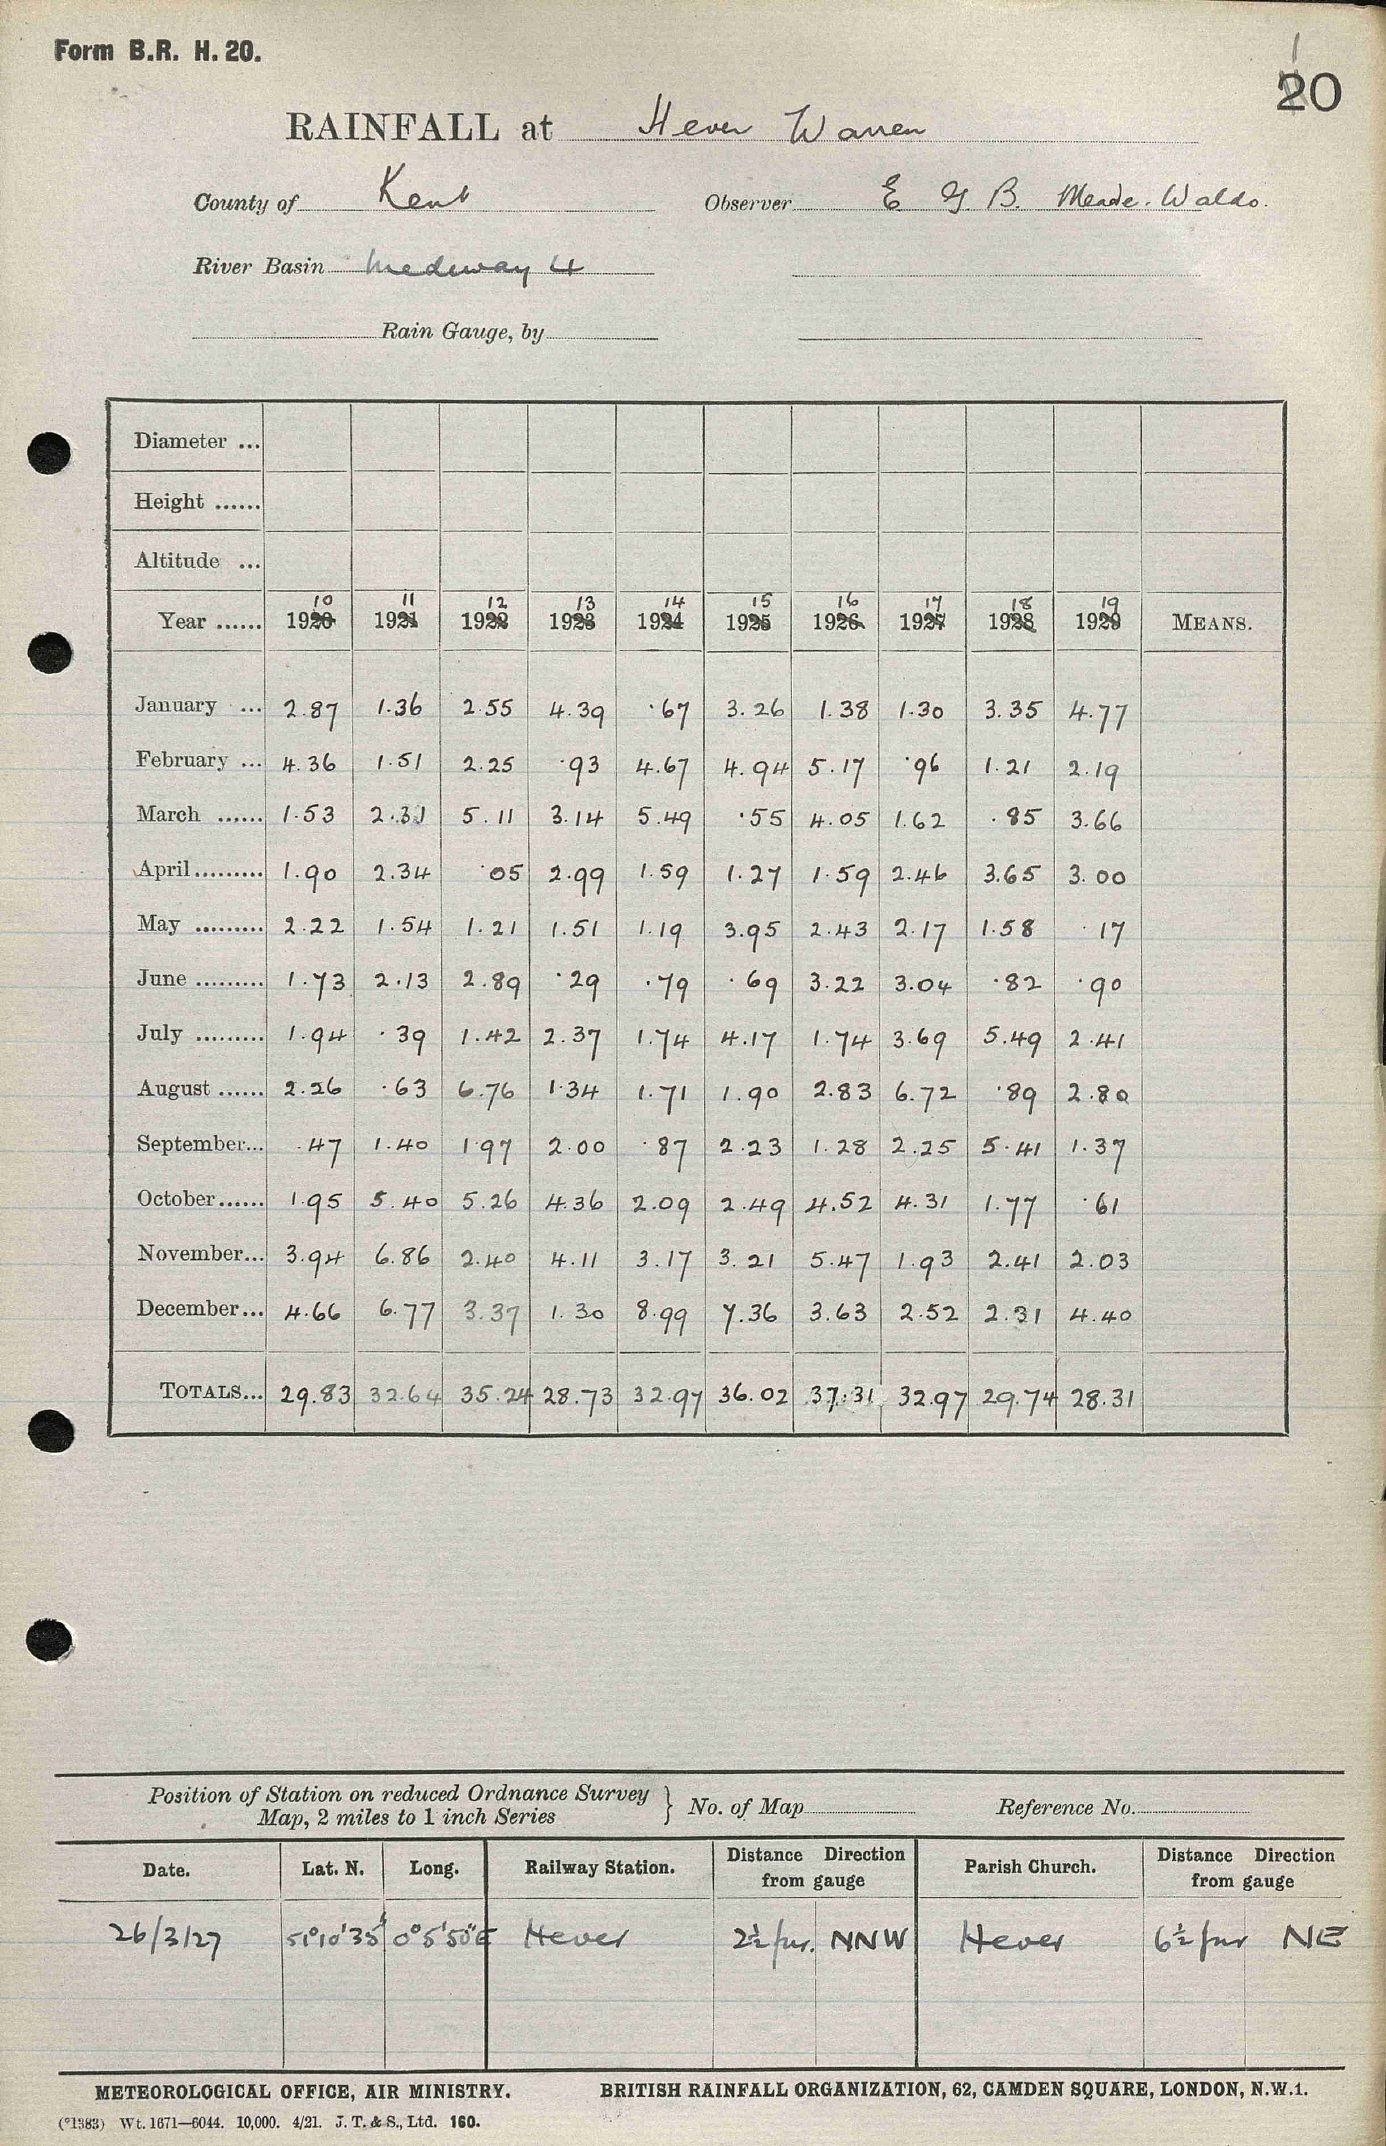 Form B.R. H. 20.
1
20
RAINFALL at Hever Warren
County of Kent Observer E G B. Meade-Waldo.
River Basin Medway 4
Rain Gauge, by
Diameter ...
Height ......
Altitude ...
10 11 12 13 14 15 16 17 18 19
Year ...... 1920 1921 1922 1923 1924 1925 1926 1927 1928 1929 MEANS.
January ... 2.87 1.36 2.55 4.39 .67 3.26 1.38 1.30 3.35 4.77
February ... 4.36 1.51 2.25 .93 4.67 4.94 5.17 .96 1.21 2.19
March ...... 1.53 2.31 5.11 3.14 5.49 .55 4.05 1.62 .85 3.66
April......... 1.90 2.34 .05 2.99 1.59 1.27 1.59 2.46 3.65 3.00
May ......... 2.22 1.54 1.21 1.51 1.19 3.95 2.43 2.17 1.58 .17
June ......... 1.73 2.13 2.89 .29 .79 .69 3.22 3.04 .82 .90
July ......... 1.94 .39 1.42 2.37 1.74 4.17 1.74 3.69 5.49 2.41
August ...... 2.26 .63 6.76 1.34 1.71 1.90 2.83 6.72 .89 2.80
September... .47 1.40 1.97 2.00 .87 2.23 1.28 2.25 5.41 1.37
October...... 1.95 5.40 5.26 4.36 2.09 2.49 4.52 4.31 1.77 .61
November... 3.94 6.86 2.40 4.11 3.17 3.21 5.47 1.93 2.41 2.03
December... 4.66 6.77 3.37 1.30 8.99 7.36 3.63 2.52 2.31 4.40
TOTALS... 29.83 32.64 35.24 28.73 32.97 36.02 37.31 32.97 29.74 28.31
Position of Station on reduced Ordnance Survey
Map, 2 miles to 1 inch Series } No. of Map Reference No.
Date. Lat. N. Long. Railway Station. Distance Direction from gauge Parish Church. Distance Direction from gauge
26/3/27 51°10'35" 0°5'50"E Hever 2½ fur. NNW Hever 6½ fur NE
METEOROLOGICAL OFFICE, AIR MINISTRY. BRITISH RAINFALL ORGANIZATION, 62, CAMDEN SQUARE, LONDON, N.W.1.
(°1383) Wt. 1671—6044. 10,000. 4/21. J. T. & S., Ltd. 160.